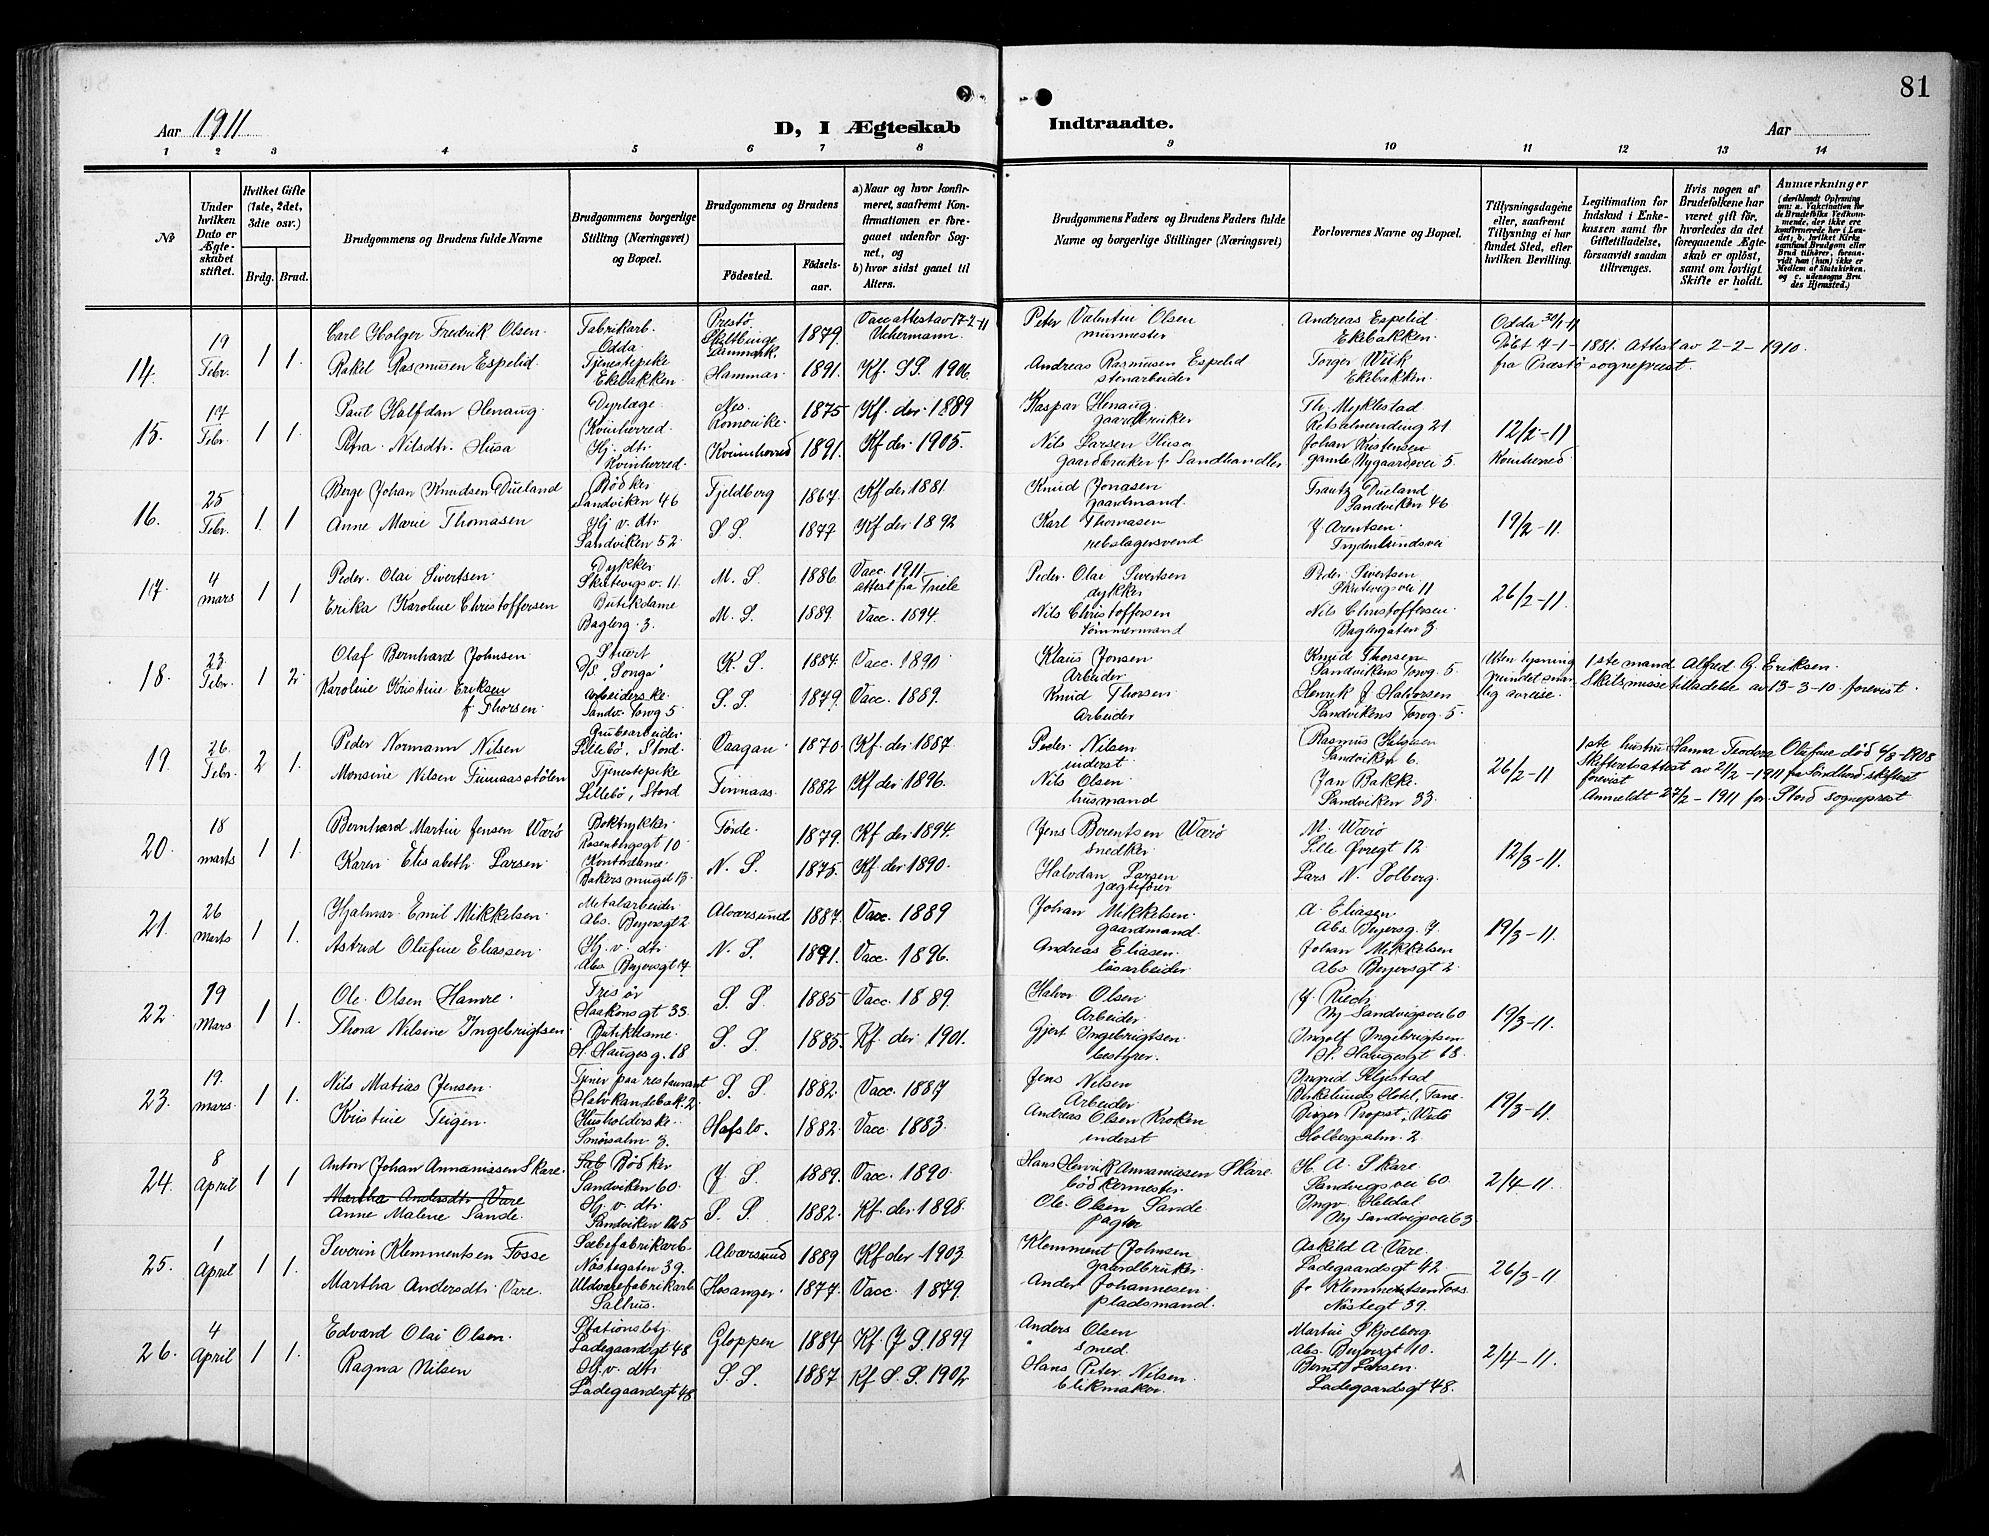 81
Aar 1911
D, I Ægteskab Indtraadte.
Aar
1 2 3 4 5 6 7 8 9 10 11 12 13 14
No
Under hvilken Dato er Ægteskabet stiftet.
Hvilket Gifte (1ste, 2det, 3die osv.)
Brdg. Brud.
Brudgommens og Brudens fulde Navne
Brudgommens borgerlige Stilling (Næringsvei) og Bopæl.
Brudgommens og Brudens
Fødested.
Fødselsaar.
a) Naar og hvor konfirmeret, saafremt Konfirmationen er foregaaet udenfor Sognet, og
b) hvor sidst gaaet til Alters.
Brudgommens Faders og Brudens Faders fulde Navne og borgerlige Stillinger (Næringsvei)
Forlovernes Navne og Bopæl.
Tillysningsdagene eller, saafremt Tillysning ei har fundet Sted, efter hvilken Bevilling.
Legitimation for Indskud i Enkekassen samt for Giftetilladelse, forsaavidt saadan tiltrænges.
Hvis nogen af Brudefolkene har været gift før, hvorledes da det foregaaende Ægteskab er opløst, samt om lovligt Skifte er holdt.
Anmærkninger (deriblandt Oplysning om: a. Vaccination for de Brudefolks Vedkommende, der ikke ere konfirmerede her i Landet; b. hvilket Kirkesamfund Brudgom eller Brud tilhører, forsaavidt han (hun) ikke er Medlem af Statskirken, og c. udensogns Brudes Hjemsted.)
14. 19 Febr. 1 1. Carl Holger Fredrik Olsen. Fabrikarb. Odda. Prestø Danmark. 1879. Vaccattest av 17-2-11 Uchermann. Peter Valentin Olsen murmester Andreas Espelid Ekebakken. Odda 30/1-11 Døbt 7-1-1881. Attest av 2-2-1910.
Rakel Rasmusen Espelid. Tjenestepike Ekebakken. Hammar. 1891. Kf. S S. 1906. Andreas Rasmusen Espelid stenarbeider Torger Wiik Ekebakken. fra Præstø sogneprest.
15. 17 Febr. 1 1. Paul Halfdan Henaug. Dyrlæge. Kvinherred. Nes. Romerike. 1875 Kf. der 1889 Kaspar Henaug gaardbruker Th. Myklestad Kalfaret 12/2-11
Petra Nilsdtr. Husa Hj. dtr. Kvinherred. Kvinnherred 1891. Kf der 1905. Nils Larsen Husa gaardbruker & Landhandler Johan Kristensen gamle Nygaardsvei 5. Kvinherred.
16. 25 Febr. 1. 1 Berge Johan Knudsen Dueland Bødker Sandviken 46 Fjeldberg 1867. Kf der 1881. Knud Jonasen gaardmand. Frantz Dueland Sandviken 46 19/2-11.
Anne Marie Thomasen Hj v. dtr Sandviken 52. S S. 1877 Kf der 1892 Karl Thomasen rebslagersvend J. Arentsen. Frydenlundsvei
17. 4 mars 1 1 Peder Olai Sivertsen. Dykker Skutevigsv. 11. M. S. 1886 Vacc. 1911 attest fra Friele Peder Olai Sivertsen dykker Peder Sivertsen Skutevigsvei 11 26/2-11.
Erika Karoline Christoffersen Butikdame Baglerg. 3. M. S. 1889. Vacc. 1894. Nils Christoffersen tømmermand Nils Christoffersen. Baglergaten 3.
18. 23 Febr. 1 2. Olaf Bernhard Johnsen Stuert D/S "Songa" K. S. 1884. Vacc. 1890. Klaus Jonsen Arbeider Knud Thorsen Sandvikens Torvg. 5 Uten lysning grundet snarlig avreise. 1ste mand Alfred G. Eriksen.
Karoline Kristine Eriksen f Thorsen. Arbeiderske. Sandv. Torvg 5 S. S. 1879. Vacc. 1889. Knud Thorsen Arbeider Henrik J Halvorsen Sandvikens Torvg. 5. Skilsmissetilladelse av 13-3-10 forevist.
19. 26 Febr. 2 1. Peder Normann Nilsen Grubearbeider Lillebø, Stord Vaagan. 1870. Kf der 1887. Peder Nilsen inderst Rasmus Sandviken 6. 26/2-11 1ste hustru Hanna Teodora Olufine død 6/8-1908
Monsine Nilsen Finnaasstølen Tjenestepike Lillebø, Stord Finnaas. 1882 Kf der 1896. Nils Olsen husmand Jan Bakke. Sandviken 33. Skifteretsattest av 21/2-1911 fra Søndhord. skifteret forevist
Anmeldt 27/2-1911 for Stord sogneprest
20. 18 marts 1 1. Bernhard Martin Jensen Værø Boktrykker Rosenbergsgt 10 Førde. 1879. Kf der 1894. Jens Berentsen Værø snedker. M. Værø Lille Øvregt 12. 12/3-11.
Karen Elisabeth Larsen. Kontordame. Bakersmuget 13. N. S. 1875. Kf der 1890. Halvdan Larsen jægtefører Lars N. Solberg.
21. 26 Marts 1 1. Hjalmar Emil Mikkelsen. Metalarbeider Abs. Beyersgt 2 Alværsund 1887. Vacc. 1889 Johan Mikkelsen. gaardmand. A. Eliasen Abs. Beyersg. 7. 19/3-11.
Astrid Olufine Eliassen. Hj. v. dtr. Abs Beyersgt 7. N. S. 1891. Vacc. 1896. Andreas Eliasen. løsarbeider. Johan Mikkelsen Abs Beyersgt 2.
22. 19 Mars 1 1. Ole Olsen Hamre. Frisør Haakonsgt 33. S. S. 1885 Vacc. 1889. Halvor Olsen Arbeider. J. Rieck Ny Sandvigsvei 60 19/3-11.
Thora Nilsine Ingebrigtsen Butikdame. H. Haugesg. 18 S. S. 1885. Kf. der 1901. Gjert Ingebrigtsen. bestyrer. Ingolf Ingebrigtsen H. Haugesgt 18.
23. 19. mars. 1 1. Nils Matias Jensen. Tjener paa restaurant Halvkandebak. 2. S. S. 1882. Vacc. 1887 Jens Nilsen Arbeider Ingrid Birkelunds Hotel, 19/3-11.
Kristine Teigen. Husholderske. Smørsalm 3. Hafslo. 1882. Vacc 1883. Andreas Olsen Kroken inderst Birger Propst, Holbergsalm. 2
24. 8 April 1 1 Anton Johan Annaniassen Skare. Fab Bødker Sandviken 60. J. S. 1889. Vacc. 1890. Hans Henrik Annaniasen Skare bødkermester. H. A. Skare Sandvigsvei 60 2/4-11.
Martha Andersdtr Vare
Anne Malene Sande. Hj. v. dtr. Sandviken 125 S. S. 1882. Kf. der 1898. Ole Olsen Sande pagter Ingv. Heldal Ny Sandvigsvei 63
25. 1 April 1 1. Severin Klemmentsen Fosse Sæbefabrikarb. Nøstegaten 39. Alværsund 1889 Kf der 1903. Klemment Johnsen gaardbruker. Askild A Vare. Ladegaardsgt 42. 26/3-11.
Martha Andersdtr Vare. Uldvarefabrikarb Salhus. Hosanger. 1877. Vacc. 1879. Anders Johannesen. pladsmand. Klemmentsen Foss. Nøstegt 39.
26. 4 April 1 1. Edvard Olai Olsen. Stationsbtj. Ladegaardsgt 48 Gloppen 1884 Kf. J S. 1899 Anders Olsen smed. Martin Skjolberg. Abs. Beyersgt 10. 2/4-11.
Ragna Nilsen Hj. v. dtr. Ladegaardsgt 48 S. S. 1887 Kf S. S. 1902 Hans Peter Nilsen. blikmaker. Bernt Larsen. Ladegaardsgt 48.